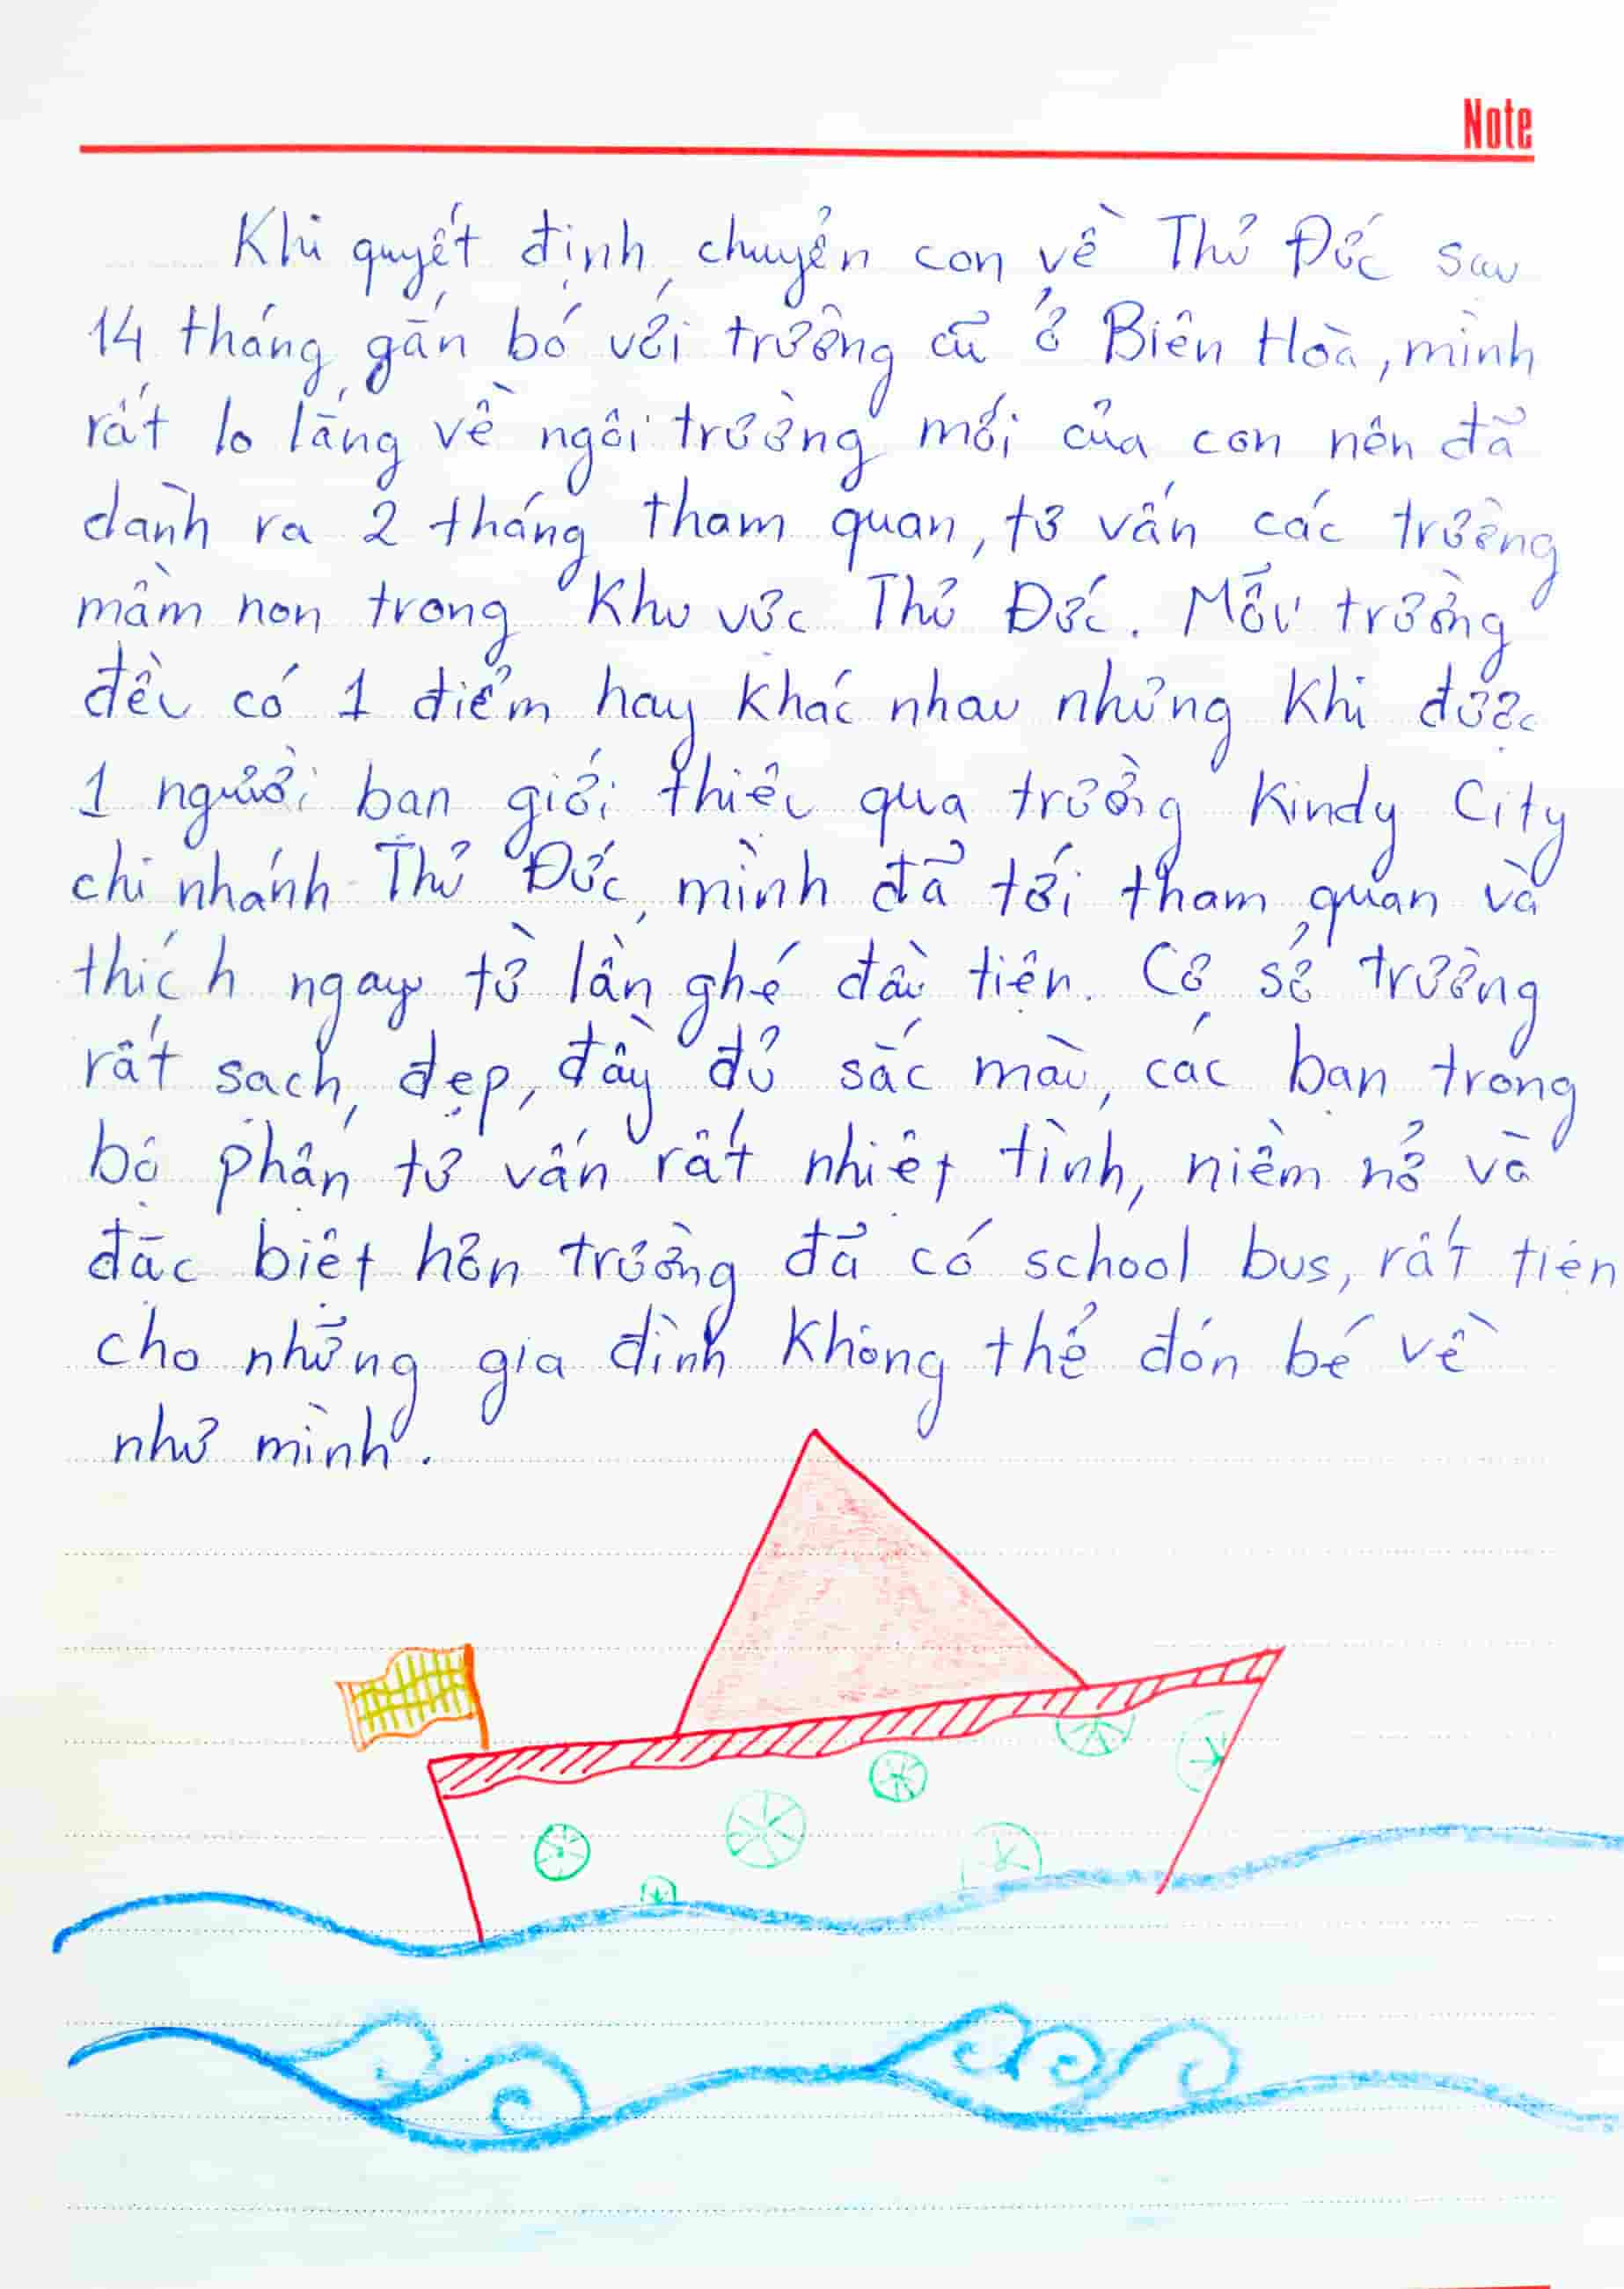 Note
Khi quyết định chuyển con về Thủ Đức sau
14 tháng gắn bó với trường cũ ở Biên Hòa, mình
rất lo lắng về ngôi trường mới của con nên đã
dành ra 2 tháng tham quan, tư vấn các trường
mầm non trong khu vực Thủ Đức. Mỗi trường
đều có 1 điểm hay khác nhau nhưng khi được
1 người bạn giới thiệu qua trường Kindy City
chi nhánh Thủ Đức, mình đã tới tham quan và
thích ngay từ lần ghé đầu tiên. Cơ sở trường
rất sạch, đẹp, đầy đủ sắc màu, các bạn trong
bộ phận tư vấn rất nhiệt tình, niềm nở và
đặc biệt hơn trường đã có school bus, rất tiện
cho những gia đình không thể đón bé về
như mình.